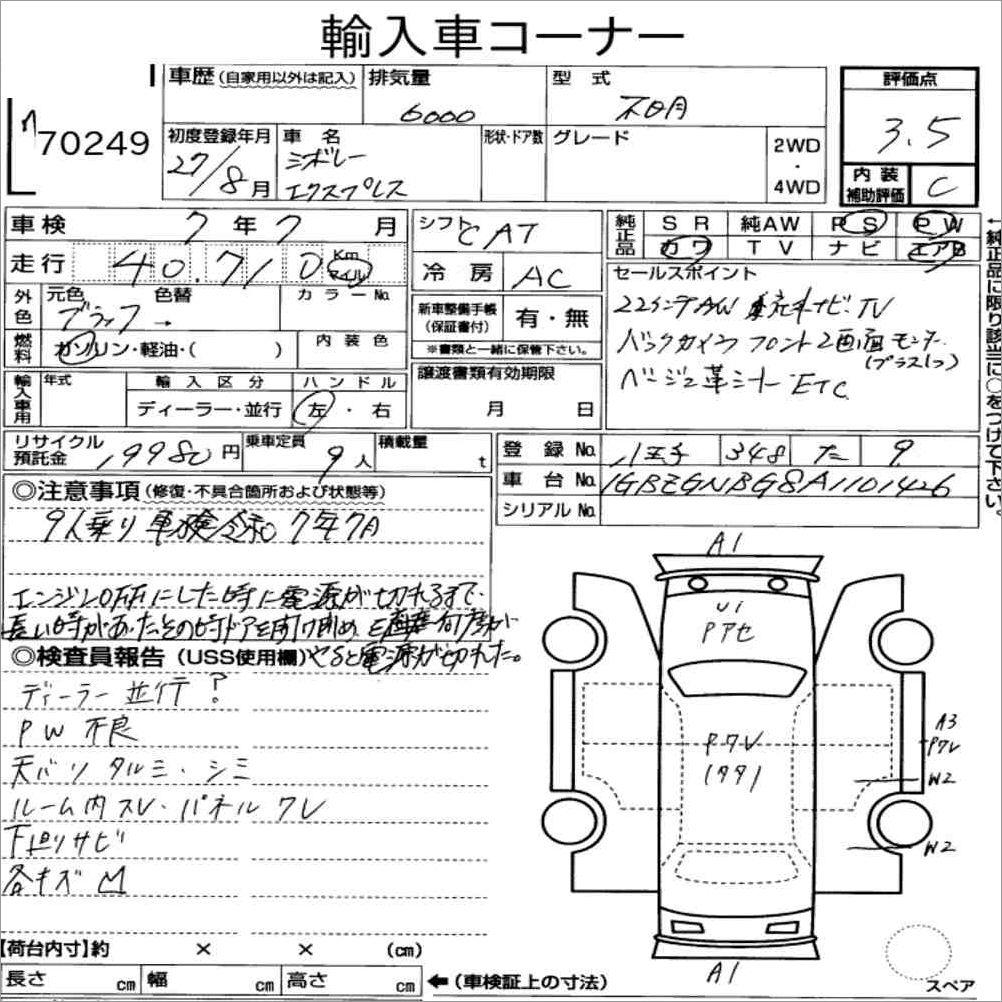 輸入車コーナー
車歴(自家用以外は記入) 排気量 型式 評価点
6000 不明
70249
初度登録年月 車名 形状・ドア数 グレード 2WD・4WD 3.5
27/8月 シボレー エクスプレス
内装補助評価 C
車検 7年7月 シフト CAT 純正品 SR 純AW PS PW
カワ TV ナビ エアB
走行 40,710 Km マイル 冷房 AC
←純正品に限り該当に○をつけて下さい。
セールスポイント
外色 元色 色替 カラーNo.
ブラック →
22インチAW 社外ナビ・TV
新車整備手帳(保証書付) 有・無
バックカメラ フロント2画面モニター
(プラス1つ)
燃料 ガソリン・軽油・( ) 内装色
※書類と一緒に保管下さい。
ベージュ革シート ETC
輸入車用 年式 輸入区分 ハンドル
ディーラー・並行 左・右
譲渡書類有効期限
月 日
リサイクル預託金 19980円 乗車定員 9人 積載量 t
登録No. 八王子 348 た 9
車台No. 1GBZGNBG8A1101426
シリアルNo.
◎注意事項(修復・不具合箇所および状態等)
9人乗り 車検令和7年7月
エンジンOFFにした時に電源が切れるまで
長い時があったその時ドアを開け閉め
やると電源が切れた。
◎検査員報告(USS使用欄)
ディーラー並行?
PW不良
天バリタルミ・シミ
ルーム内スレ・パネルワレ
下廻りサビ
各キズ凹
A1
U1
Pアセ
Pワレ
A3
Pワレ
W2
W2
A1
スペア
【荷台内寸】約 × × (cm)
長さ cm 幅 cm 高さ cm ←(車検証上の寸法)